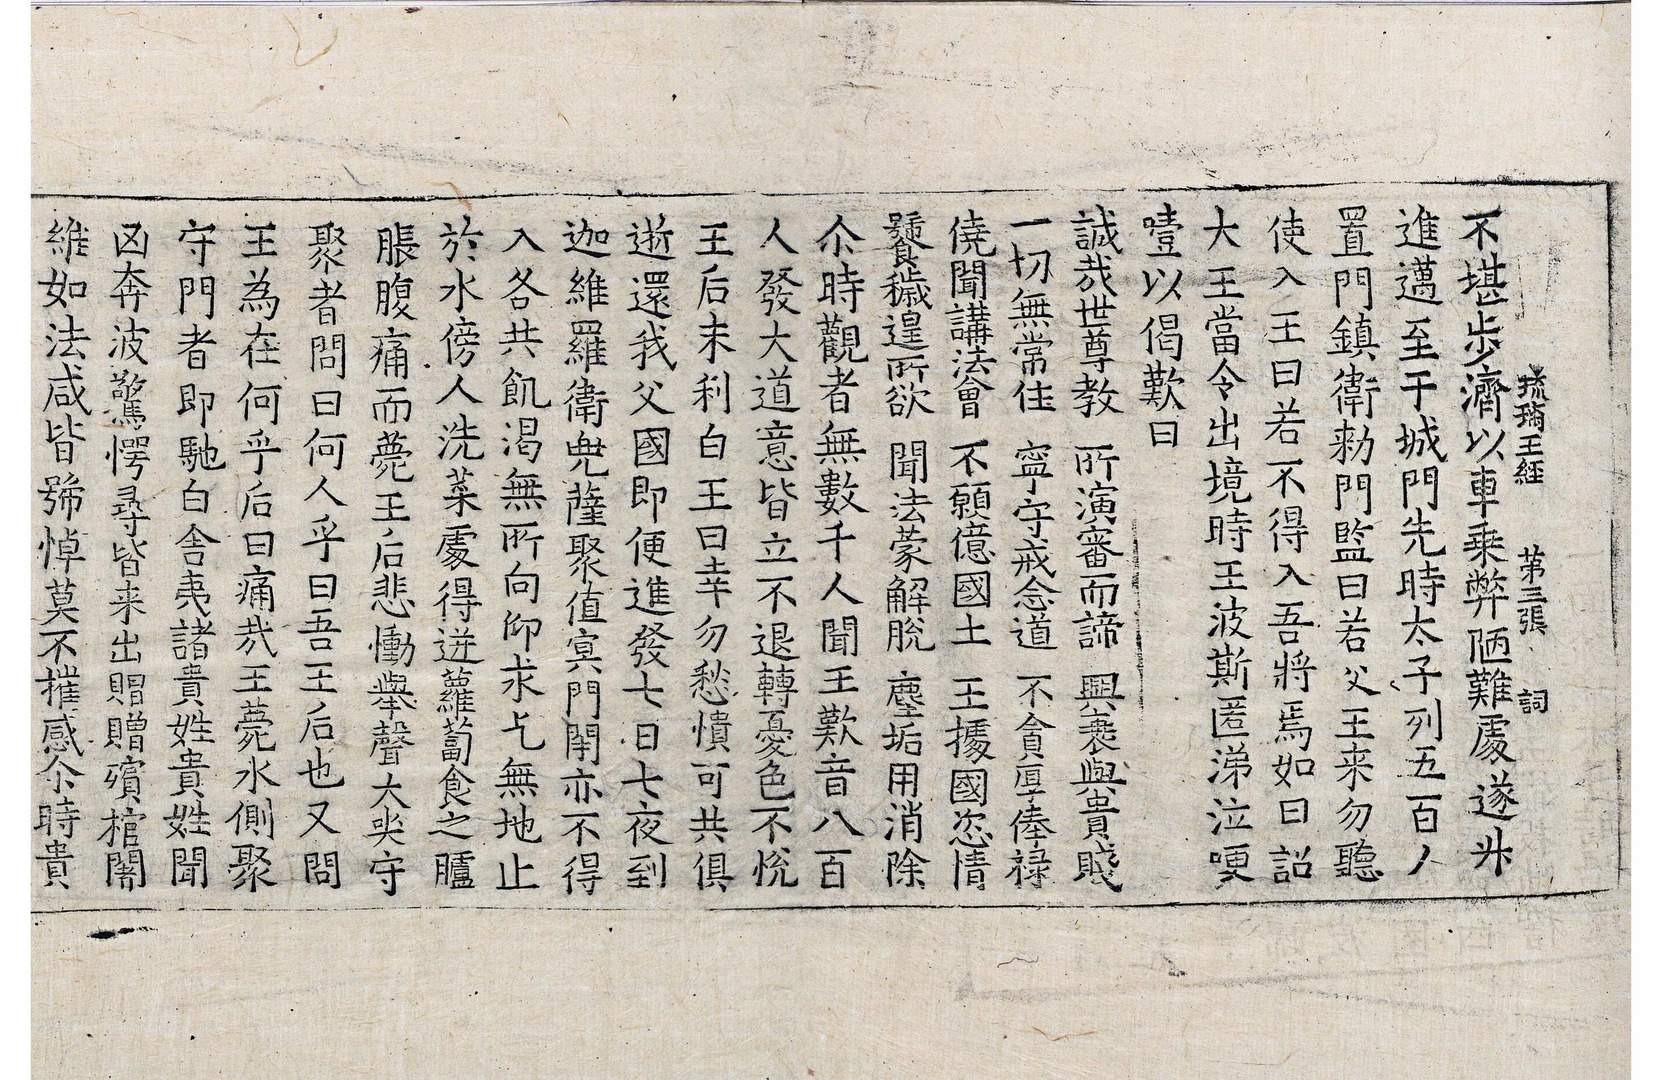 琉璃王經 第三張 詞
不堪步濟以車乗弊陋難處遂廾
進邁至于城門先時太子列五百人
置門鎮衛勑門監曰若父王来勿聽
使入王曰若不得入吾將焉如曰詔
大王當令出境時王波斯匿涕泣哽
噎以偈歎曰
誠哉世尊教 所演審而諦 興衰與貴賤
一切無常住 寧守戒念道 不貪厚俸禄
僥聞講法會 不願億國土 王據國恣情
饕餮穢遑所欲 聞法蒙解脫 塵垢用消除
尒時觀者無數千人聞王歎音八百
人發大道意皆立不退轉憂色不恱
王后末利白王曰幸勿愁憒可共俱
逝還我父國即便進發七日七夜到
迦維羅衛兜薩聚值㝠門閉亦不得
入各共飢渴無所向仰求乞無地止
於水傍人洗菜處得迸蘿蔔食之臚
脹腹痛而薨王后悲慟舉聲大哭守
聚者問曰何人乎曰吾王后也又問
王為在何乎后曰痛㢤王薨水側聚
守門者即馳白舎夷諸貴姓貴姓聞
凶奔波驚愕尋皆来出賵贈殯棺闍
維如法咸皆號悼莫不摧感尒時貴